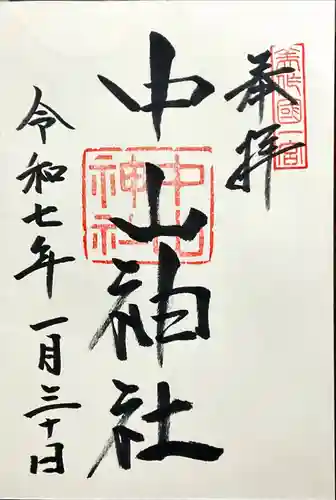 奉拝
美作國一宮
中山神社
中山神社
令和七年一月三十日